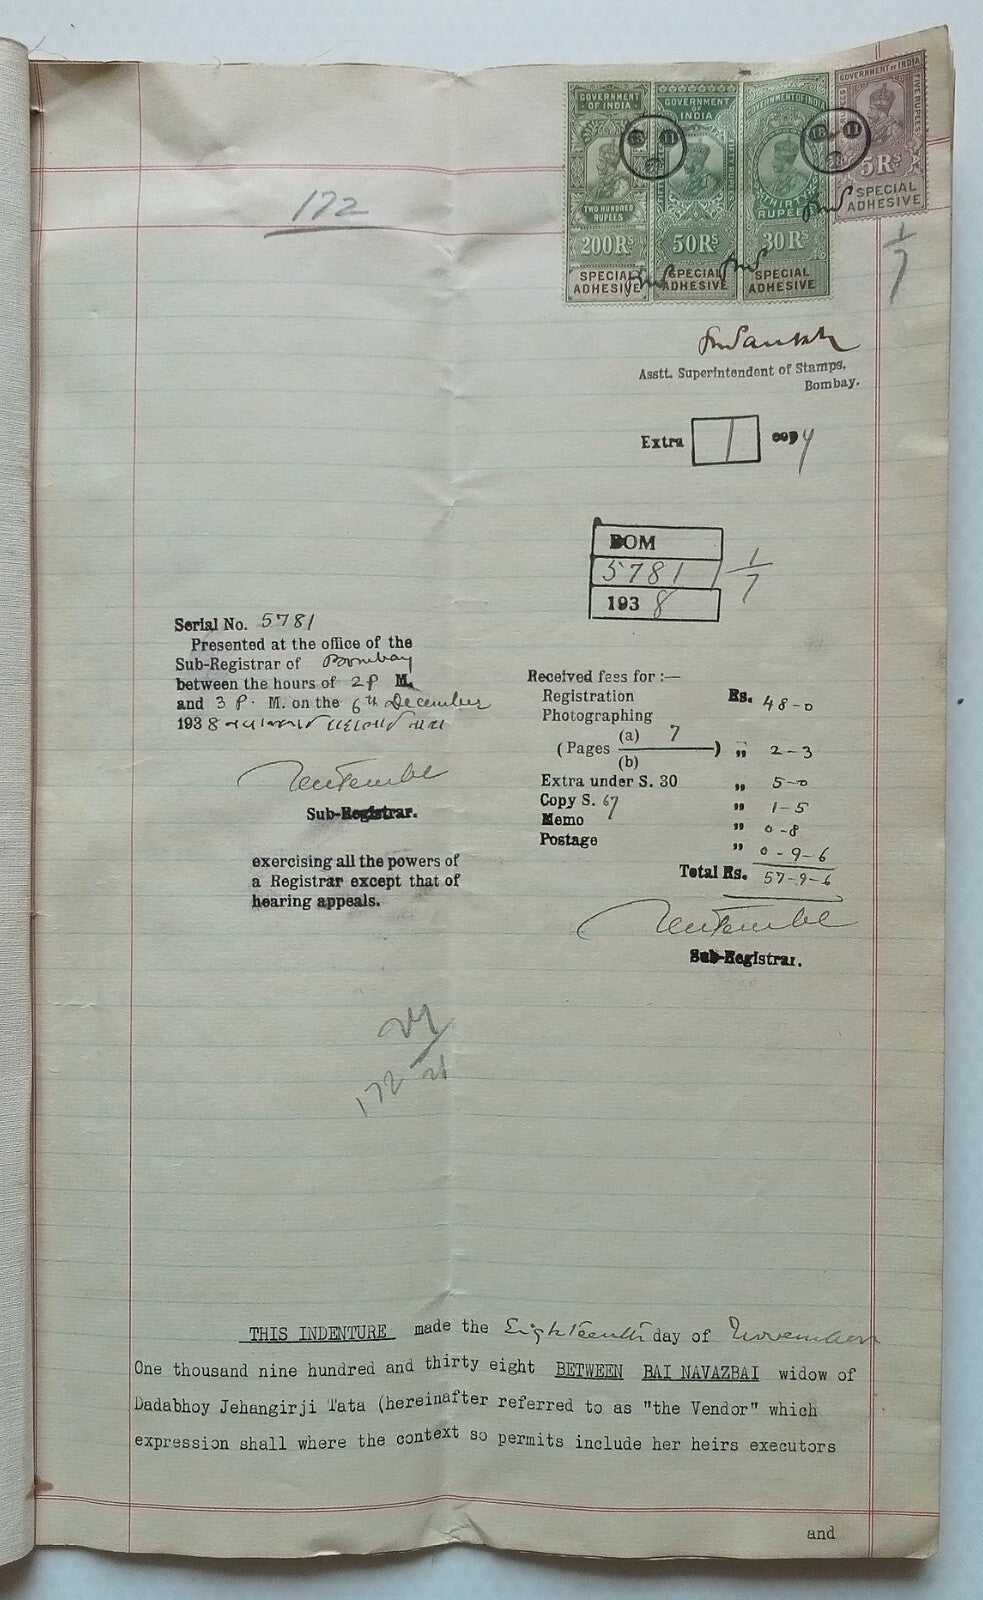 172
GOVERNMENT OF INDIA
TWO HUNDRED RUPEES
200 Rs
SPECIAL ADHESIVE
GOVERNMENT OF INDIA
50 Rs
SPECIAL ADHESIVE
GOVERNMENT OF INDIA
THIRTY RUPEES
30 Rs
SPECIAL ADHESIVE
GOVERNMENT OF INDIA
FIVE RUPEES
5 Rs
SPECIAL ADHESIVE
1/7
Asstt. Superintendent of Stamps,
Bombay.
Extra 1 copy
BOM
5781 1/7
1938
Serial No. 5781
Presented at the office of the
Sub-Registrar of Bombay
between the hours of 2 P M.
and 3 P. M. on the 6th December
1938
Sub-Registrar.
exercising all the powers of
a Registrar except that of
hearing appeals.
Received fees for :—
Registration Rs. 48-0
Photographing
(Pages (a) 7 (b) ) „ 2-3
Extra under S. 30 „ 5-0
Copy S. 67 „ 1-5
Memo „ 0-8
Postage „ 0-9-6
Total Rs. 57-9-6
Sub-Registrar.
172
THIS INDENTURE made the Eighteenth day of November
One thousand nine hundred and thirty eight BETWEEN BAI NAVAZBAI widow of
Dadabhoy Jehangirji Tata (hereinafter referred to as "the Vendor" which
expression shall where the context so permits include her heirs executors
and